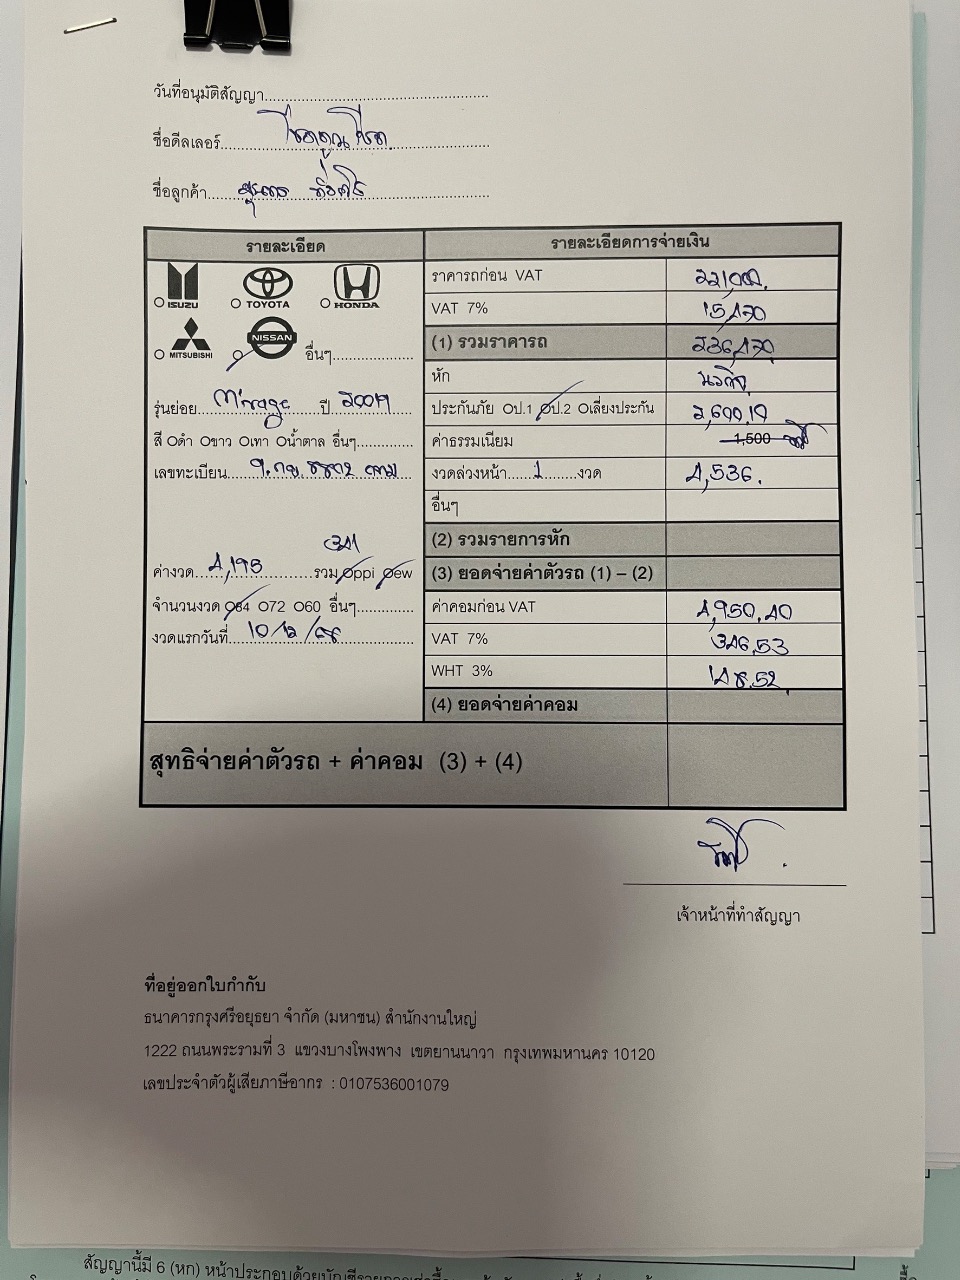 วันที่อนุมัติสัญญา
ชื่อดีลเลอร์ โชคคูณโชค
ชื่อลูกค้า
รายละเอียด
ISUZU TOYOTA HONDA
MITSUBISHI NISSAN อื่นๆ
รุ่นย่อย Mirage ปี 2019
สี Oดำ Oขาว Oเทา Oน้ำตาล อื่นๆ
เลขทะเบียน
341
ค่างวด 4,195 รวม Oppi Oew
จำนวนงวด O84 O72 O60 อื่นๆ
งวดแรกวันที่ 10/12/68
รายละเอียดการจ่ายเงิน
ราคารถก่อน VAT 221,000.
VAT 7% 15,470
(1) รวมราคารถ 236,470
หัก
ประกันภัย Oป.1 Oป.2 Oเลี่ยงประกัน 2,600.10
ค่าธรรมเนียม 1,500
งวดล่วงหน้า 1 งวด 4,536.
อื่นๆ
(2) รวมรายการหัก
(3) ยอดจ่ายค่าตัวรถ (1) – (2)
ค่าคอมก่อน VAT 4,950.40
VAT 7% 346.53
WHT 3% 148.52
(4) ยอดจ่ายค่าคอม
สุทธิจ่ายค่าตัวรถ + ค่าคอม (3) + (4)
เจ้าหน้าที่ทำสัญญา
ที่อยู่ออกใบกำกับ
ธนาคารกรุงศรีอยุธยา จำกัด (มหาชน) สำนักงานใหญ่
1222 ถนนพระรามที่ 3 แขวงบางโพงพาง เขตยานนาวา กรุงเทพมหานคร 10120
เลขประจำตัวผู้เสียภาษีอากร : 0107536001079
สัญญานี้มี 6 (หก) หน้าประกอบด้วย